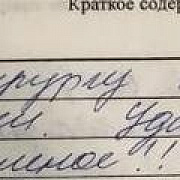 Краткое содер
рургу
и. Уда
леное!!